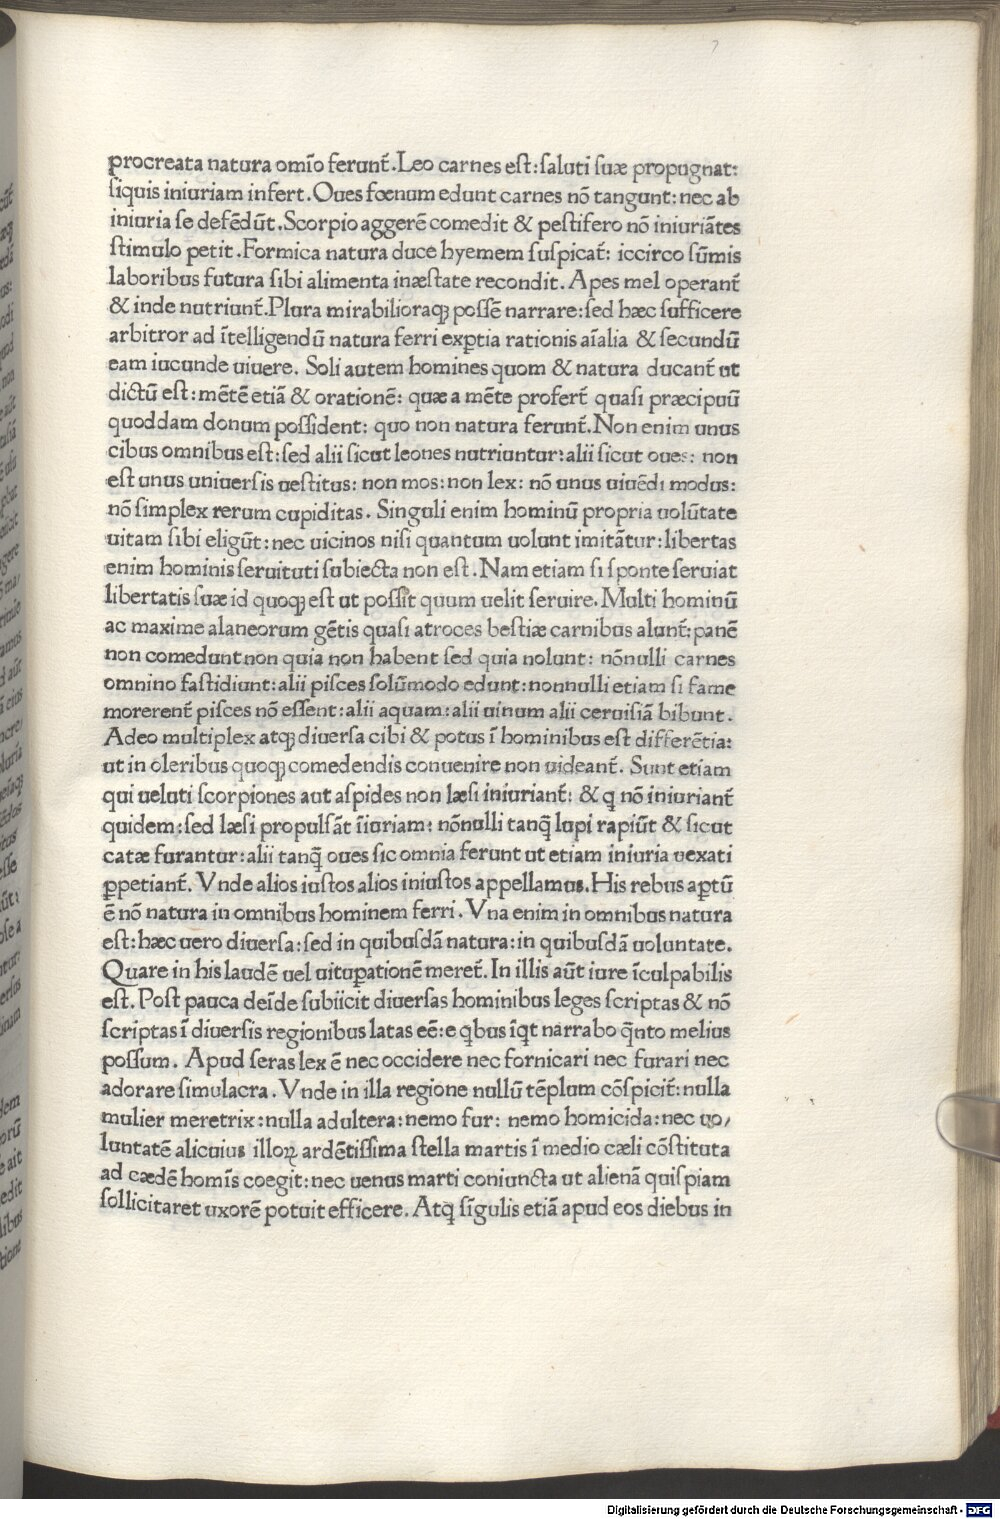 procreata natura omīo ferunt̄.Leo carnes est:saluti suæ propugnat:
siquis iniuriam infert.Oues fœnum edunt carnes nō tangunt:nec ab
iniuria se defēdūt.Scorpio aggerē comedit & pestifero nō iniuriātes
stimulo petit.Formica natura duce hyemem suspicat̄: iccirco sūmis
laboribus futura sibi alimenta inæstate recondit. Apes mel operant̄
& inde nutriunt̄.Plura mirabilioraqꝫ possē narrare:sed hæc sufficere
arbitror ad ītelligendū natura ferri exꝑtia rationis aīalia & secundū
eam iucunde uiuere. Soli autem homines quom & natura ducant̄ ut
dictū est:mētē etiā & orationē: quæ a mēte profert̄ quasi præcipuū
quoddam donum possident: quo non natura ferunt̄.Non enim unus
cibus omnibus est:sed alii sicut leones nutriuntur:alii sicut oues: non
est unus uniuersis uestitus: non mos: non lex: nō unus uiuēdi modus:
nō simplex rerum cupiditas. Singuli enim hominū propria uolūtate
uitam sibi eligūt:nec uicinos nisi quantum uolunt imitātur:libertas
enim hominis seruituti subiecta non est.Nam etiam si sponte seruiat
libertatis suæ id quoqꝫ est ut possit quum uelit seruire.Multi hominū
ac maxime alaneorum gētis quasi atroces bestiæ carnibus alunt̄:panē
non comedunt non quia non habent sed quia nolunt: nōnulli carnes
omnino fastidiunt:alii pisces solūmodo edunt:nonnulli etiam si fame
morerent̄ pisces nō essent:alii aquam:alii uinum alii ceruisiā bibunt.
Adeo multiplex atqꝫ diuersa cibi & potus ī hominibus est differētia:
ut in oleribus quoqꝫ comedendis conuenire non uideant̄. Sunt etiam
qui ueluti scorpiones aut aspides non læsi iniuriant̄: & q̄ nō iniuriant̄
quidem:sed læsi propulsāt īiuriam: nōnulli tanq̄ lupi rapiūt & sicut
catæ furantur:alii tanq̄ oues sic omnia ferunt ut etiam iniuria uexati
ꝑpetiant̄. Vnde alios iustos alios iniustos appellamus.His rebus apertū
ē nō natura in omnibus hominem ferri.Vna enim in omnibus natura
est:hæc uero diuersa:sed in quibusdā natura:in quibusdā uoluntate.
Quare in his laudē uel uituꝑationē meret̄.In illis aūt iure īculpabilis
est.Post pauca deīde subiicit diuersas hominibus leges scriptas & nō
scriptas ī diuersis regionibus latas eē:e qbus īqt narrabo q̄nto melius
possum. Apud seras lex ē nec occidere nec fornicari nec furari nec
adorare simulacra. Vnde in illa regione nullū tēplum cōspicit̄:nulla
mulier meretrix:nulla adultera:nemo fur: nemo homicida:nec uo/
luntatē alicuius illoꝝ ardētissima stella martis ī medio cæli cōstituta
ad cædē homīs coegit:nec uenus marti coniuncta ut alienā quispiam
sollicitaret uxorē potuit efficere. Atqꝫ sīgulis etiā apud eos diebus in
Digitalisierung gefördert durch die Deutsche Forschungsgemeinschaft - DFG